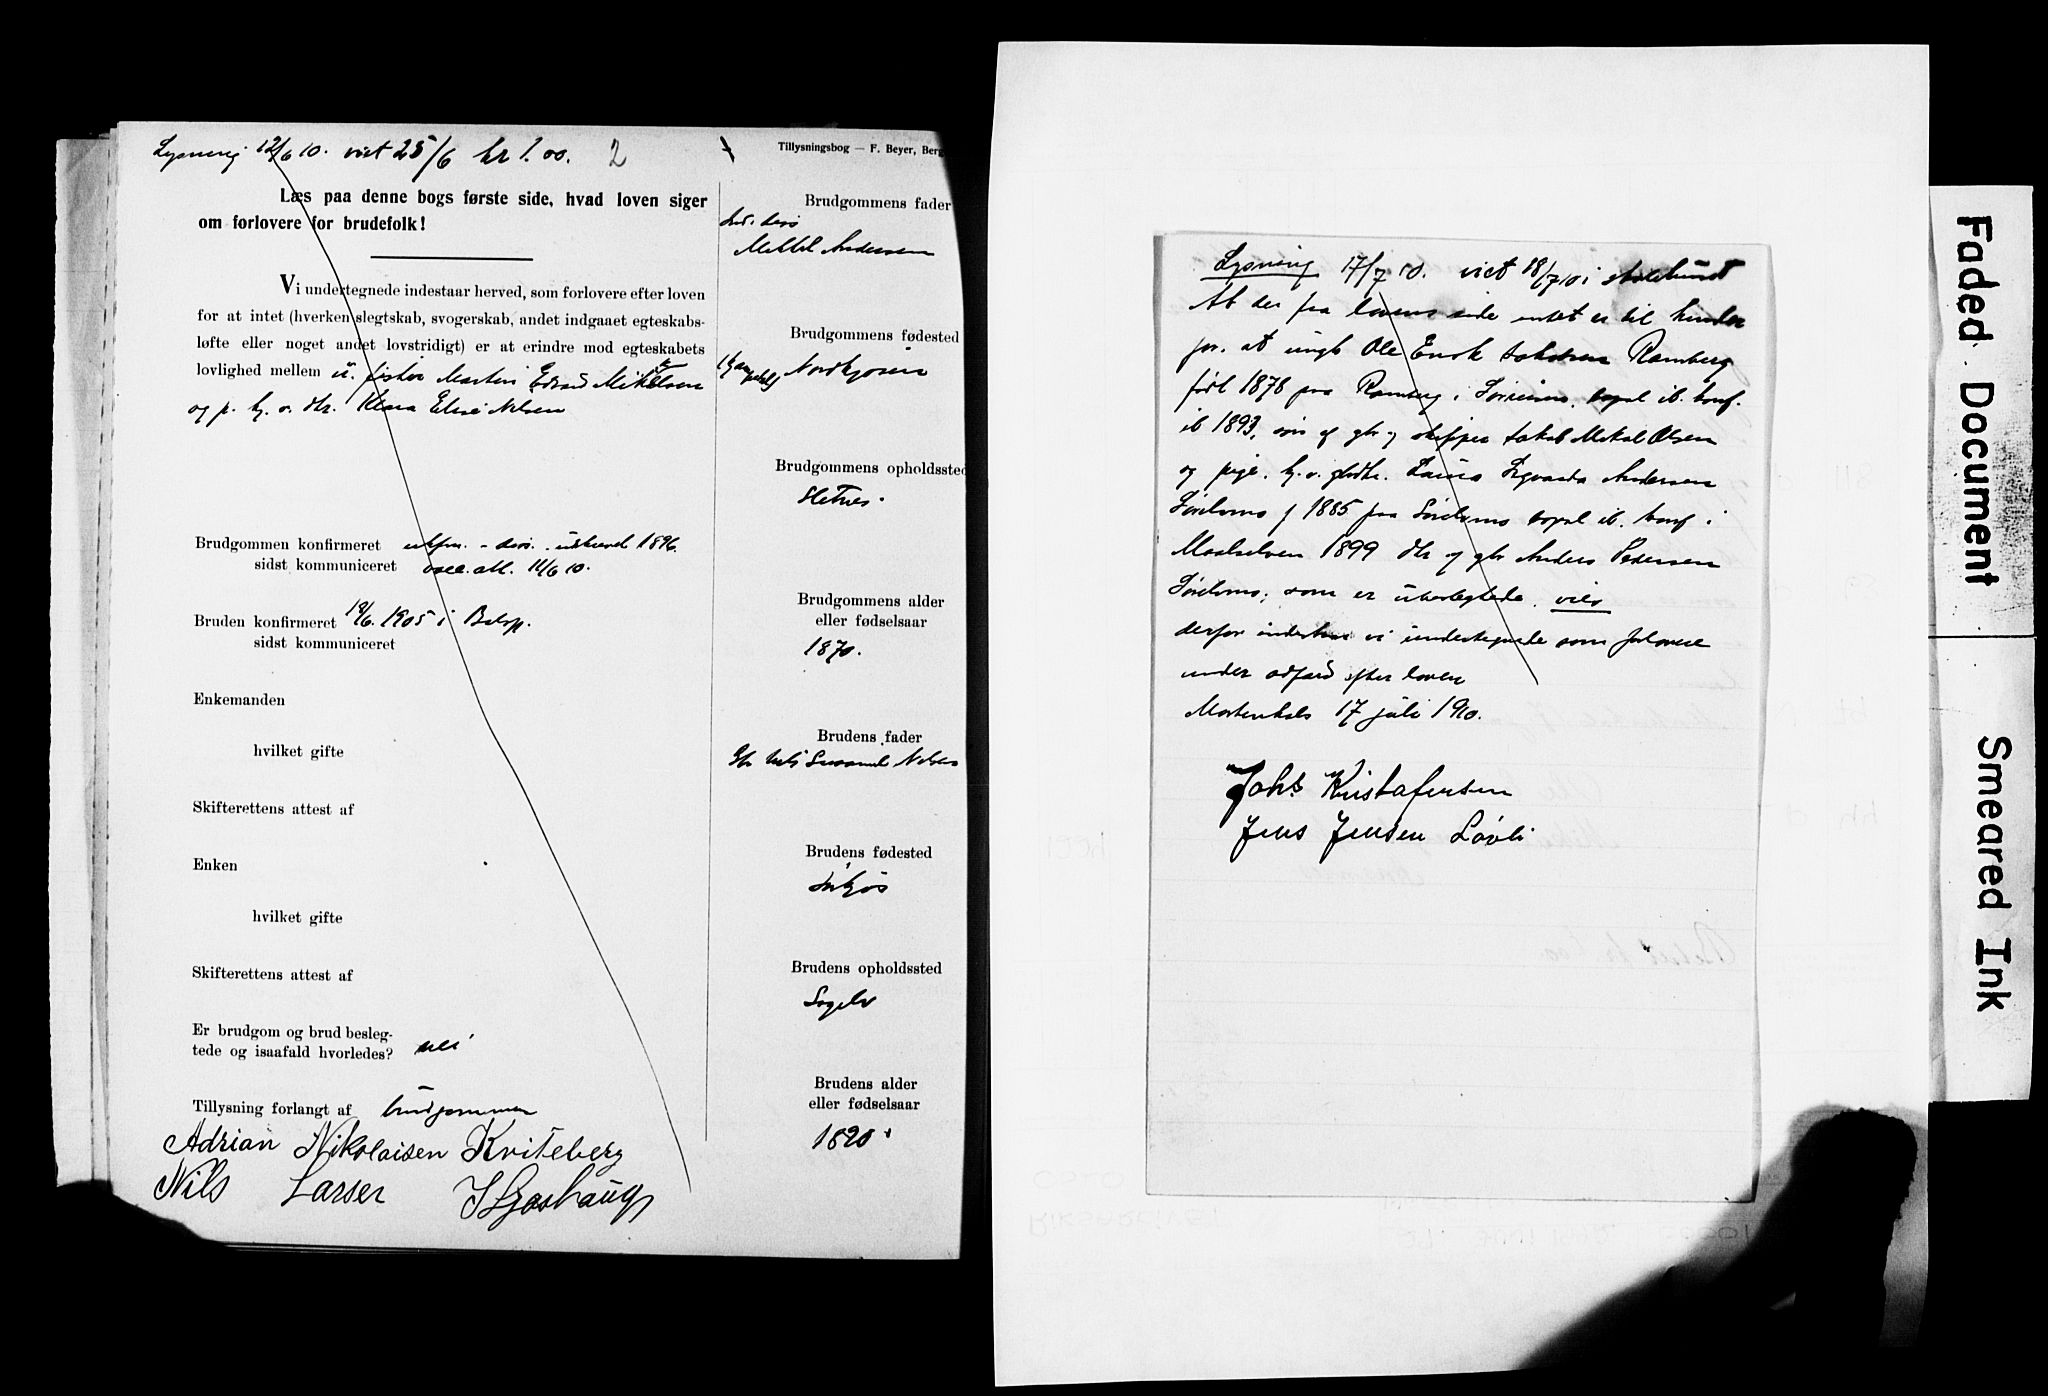 Lysning 12/6 10. viet 25/6 kr 1.00. 2
Tillysningsbog — F. Beyer, Berg
Læs paa denne bogs første side, hvad loven siger
om forlovere for brudefolk!
Vi undertegnede indestaar herved, som forlovere efter loven
for at intet (hverken slegtskab, svogerskab, andet indgaaet egteskabs-
løfte eller noget andet lovstridigt) er at erindre mod egteskabets
lovlighed mellem u. fisker Martin Edvard Mikkelsen
og p. hj. v. dtr. Klara Elise Nilsen
Brudgommen konfirmeret 1896.
sidst kommuniceret 11/6 10.
Bruden konfirmeret 18/6. 1905 i Balsfj.
sidst kommuniceret
Enkemanden
hvilket gifte
Skifterettens attest af
Enken
hvilket gifte
Skifterettens attest af
Er brudgom og brud besleg-
tede og isaafald hvorledes? nei
Tillysning forlangt af brudgommen
Adrian Nikolaisen Kviteberg
Nils Larsen
Brudgommens fader
Mikkel Andersen
Brudgommens fødested
Nordkjosen
Brudgommens opholdssted
Sletnes.
Brudgommens alder
eller fødselsaar
1870.
Brudens fader
Nilsen
Brudens fødested
Brudens opholdssted
Sagelv
Brudens alder
eller fødselsaar
1890.
Lysning 17/7 10. viet 18/7 10 i
At der fra lovens side intet er til hinder
for, at ungk Ole Enok Jakobsen Ramberg
født 1878 paa Ramberg i Sørreisa, bopæl ib. konf.
ib 1893, søn af gbr og skipper Jakob Mikal Olsen
og pige, hj. v. gbrdtr. Laura Sigvarda Andersen
f 1885 paa bopæl ib. konf i
Maalselven 1899 dtr af gbr Anders Pedersen
som er ubeslegtede, vies
derfor indestaar vi undertegnede som forlovere
under adfærd efter loven
Mortenhals 17 juli 1910.
Johs Kristofersen
Jens Jensen Løvli
Faded Document
Smeared Ink